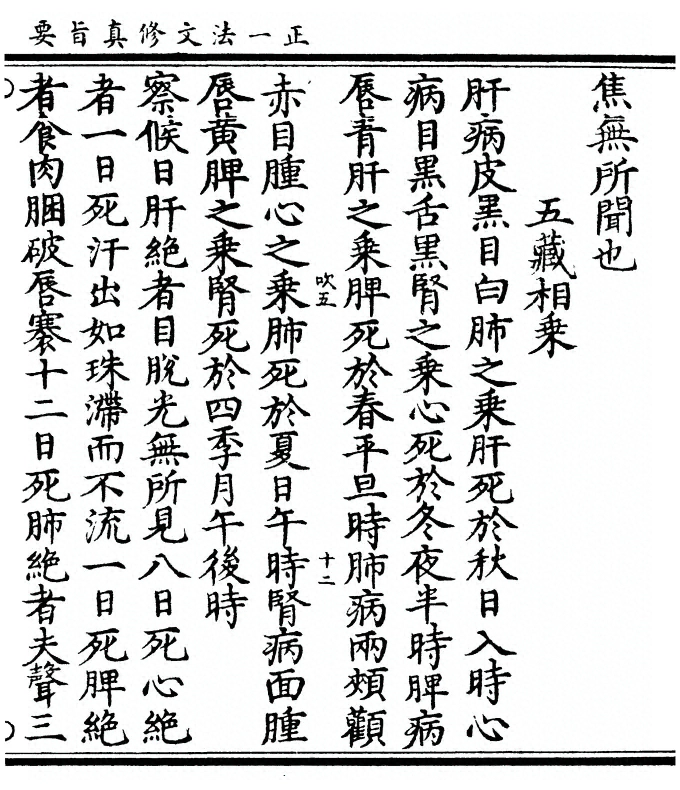 正一法文修真旨要
焦無所聞也
五藏相乗
肝病皮黒目白肺之乗肝死於秋日入時心
病目黒舌黒腎之乗心死於冬夜半時脾病
唇青肝之乗脾死於春平旦時肺病兩頰顴
吹五
十二
赤目腫心之乗肺死於夏日午時腎病面腫
唇黄脾之乗腎死於四季月午後時
察候日肝絶者目脫光無所見八日死心絶
者一日死汗出如珠滯而不流一日死脾絶
者食肉䐃破唇褰十二日死肺絶者夫聲三